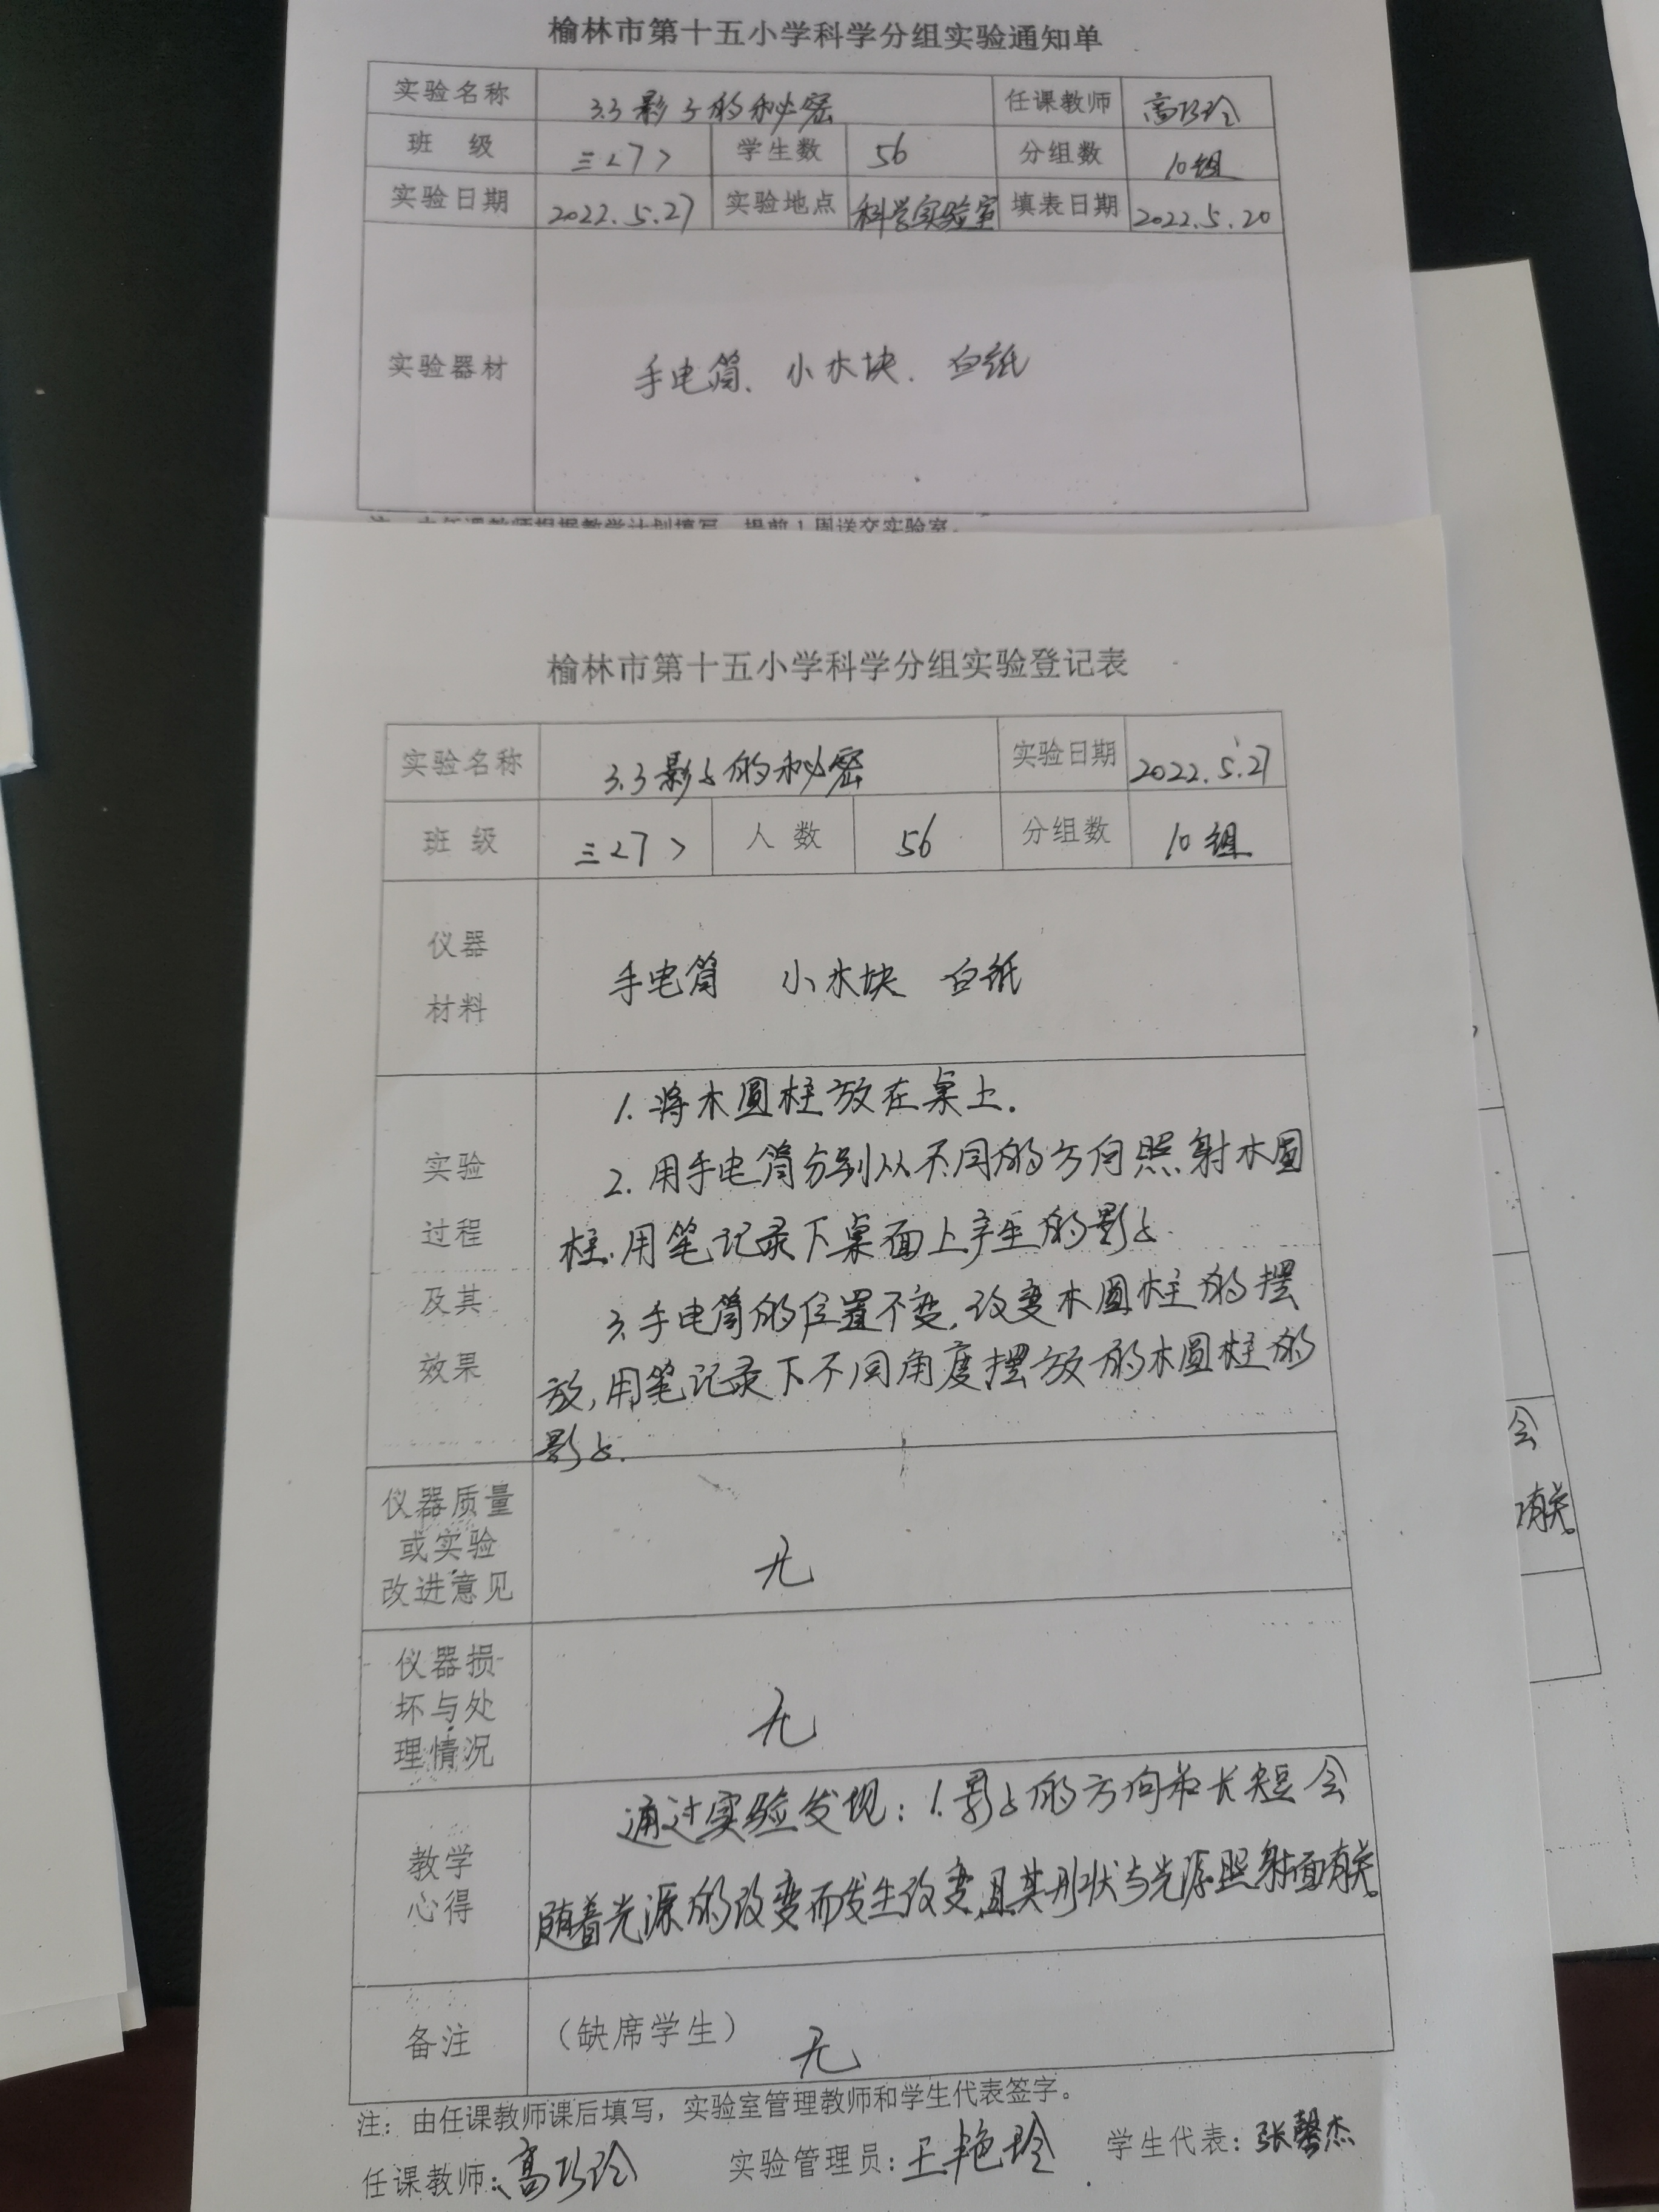 榆林市第十五小学科学分组实验通知单
实验名称 3.3影子的秘密 任课教师 高巧玲
班 级 三<7> 学生数 56 分组数 10组
实验日期 2022.5.27 实验地点 科学实验室 填表日期 2022.5.20
实验器材 手电筒、小木块、白纸
注：由任课教师根据教学计划填写，提前1周送交实验室。
榆林市第十五小学科学分组实验登记表
实验名称 3.3影子的秘密 实验日期 2022.5.27
班 级 三<7> 人 数 56 分组数 10组
仪器
材料
手电筒 小木块 白纸
实验
过程
及其
效果
1.将木圆柱放在桌上.
2.用手电筒分别从不同的方向照射木圆
柱.用笔记录下桌面上产生的影子.
3.手电筒的位置不变,改变木圆柱的摆
放,用笔记录下不同角度摆放的木圆柱的
影子.
仪器质量
或实验
改进意见
无
仪器损
坏与处
理情况
无
教学
心得
通过实验发现：1.影子的方向和长短会
随着光源的改变而发生改变,且其形状与光源照射面有关。
备注 （缺席学生） 无
注：由任课教师课后填写，实验室管理教师和学生代表签字。
任课教师：高巧玲 实验管理员：王艳玲 学生代表：张馨杰
会
有关。